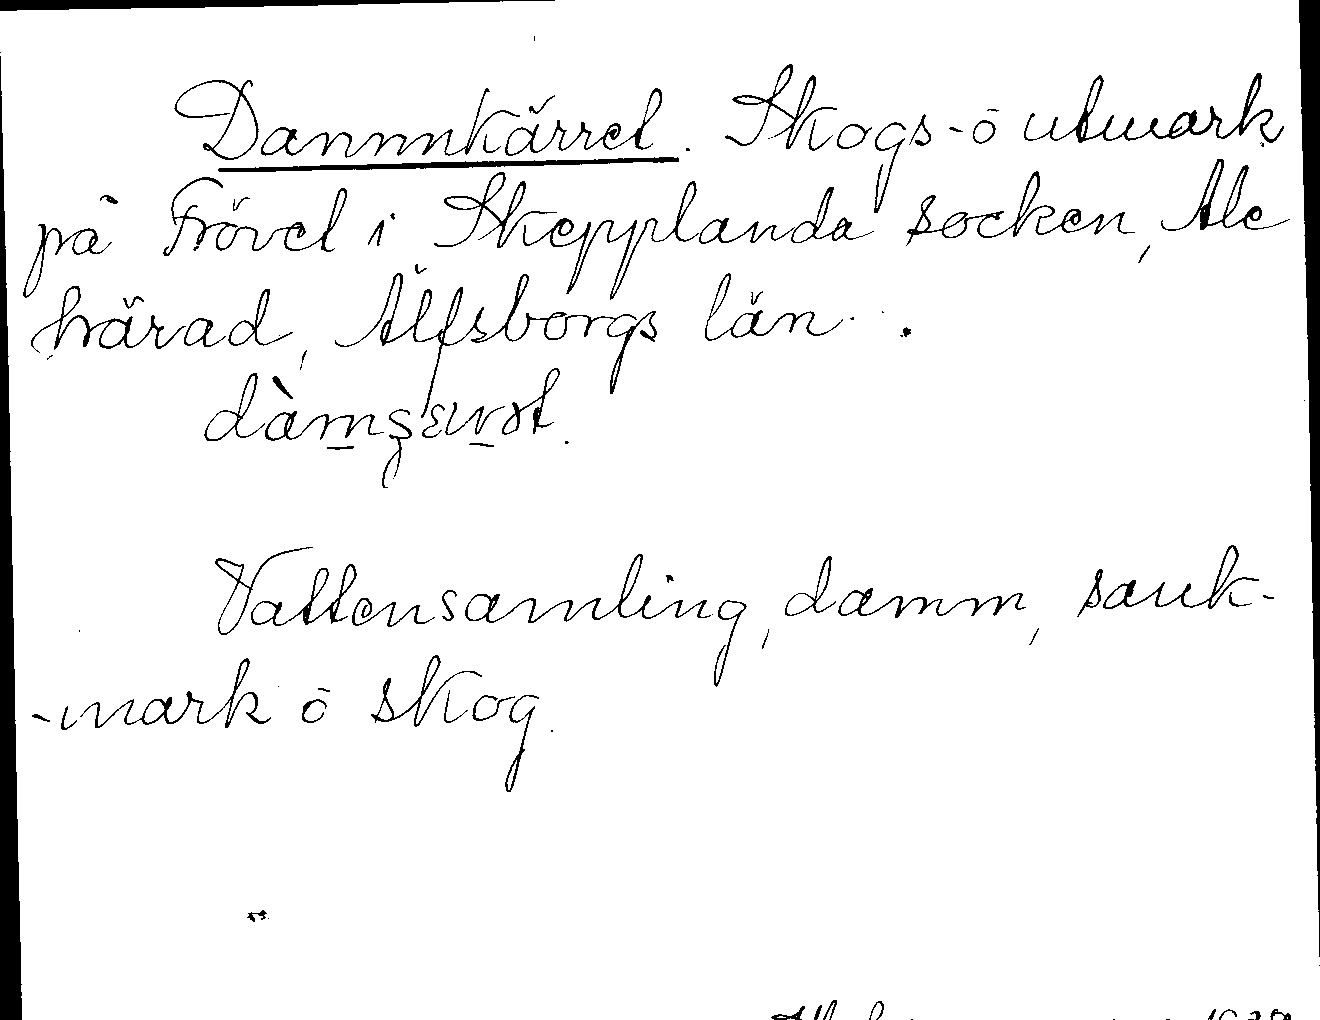 Dammkärret. Skogs-o utmark
på Frövet i Skepplanda socken, Ale
härad, Älfsborgs län.
Vattensamling, damm, sank-
-mark o skog.